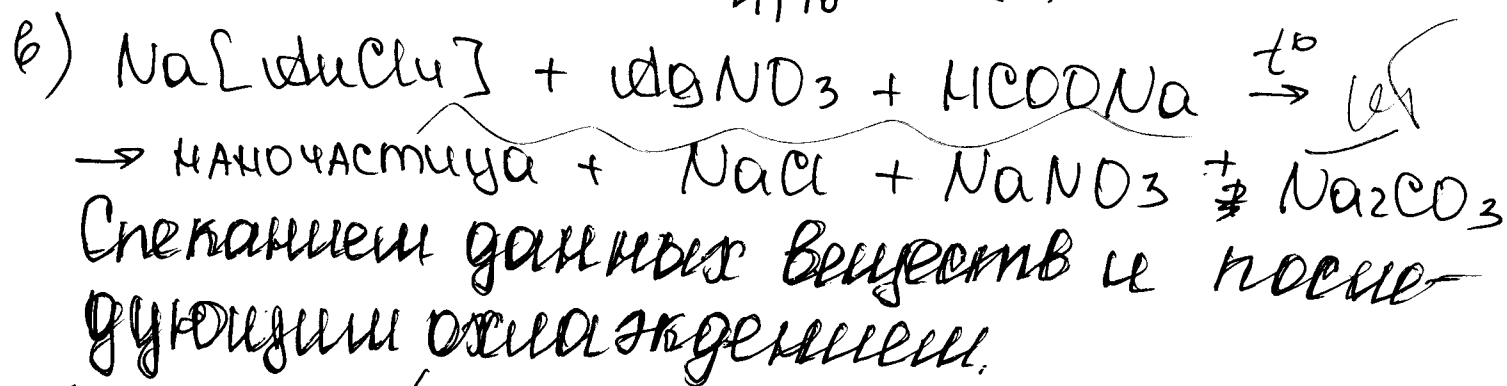 в) Na[AuCl4] + AgNO3 + HCOONa t° →
→ наночастица + NaCl + NaNO3 + Na2CO3
Спеканием данных веществ и после-
дующим охлаждением.